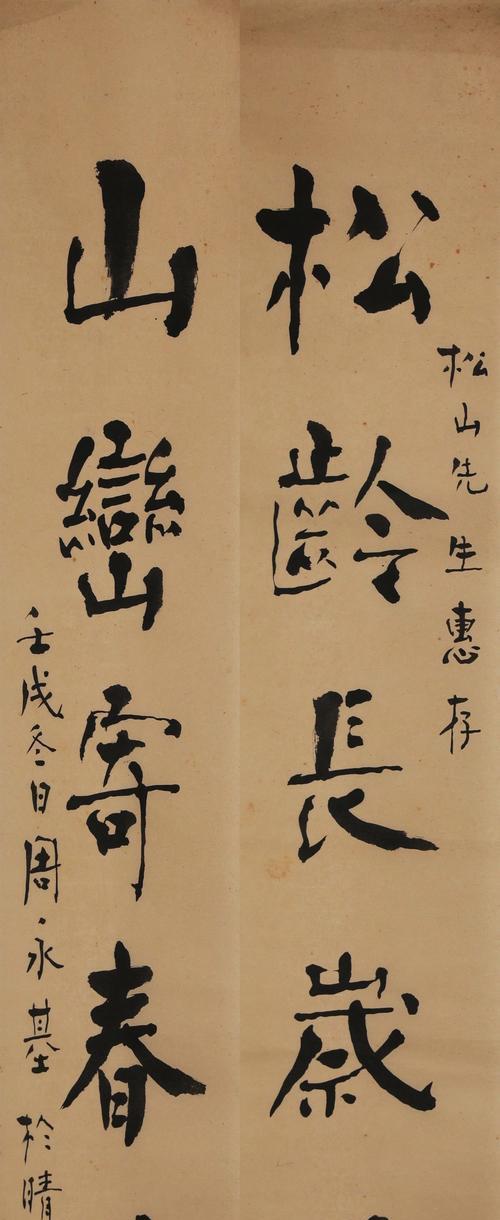 松山先生惠存
松齡長歲
山巒寄春
壬戌冬日周永基於晴